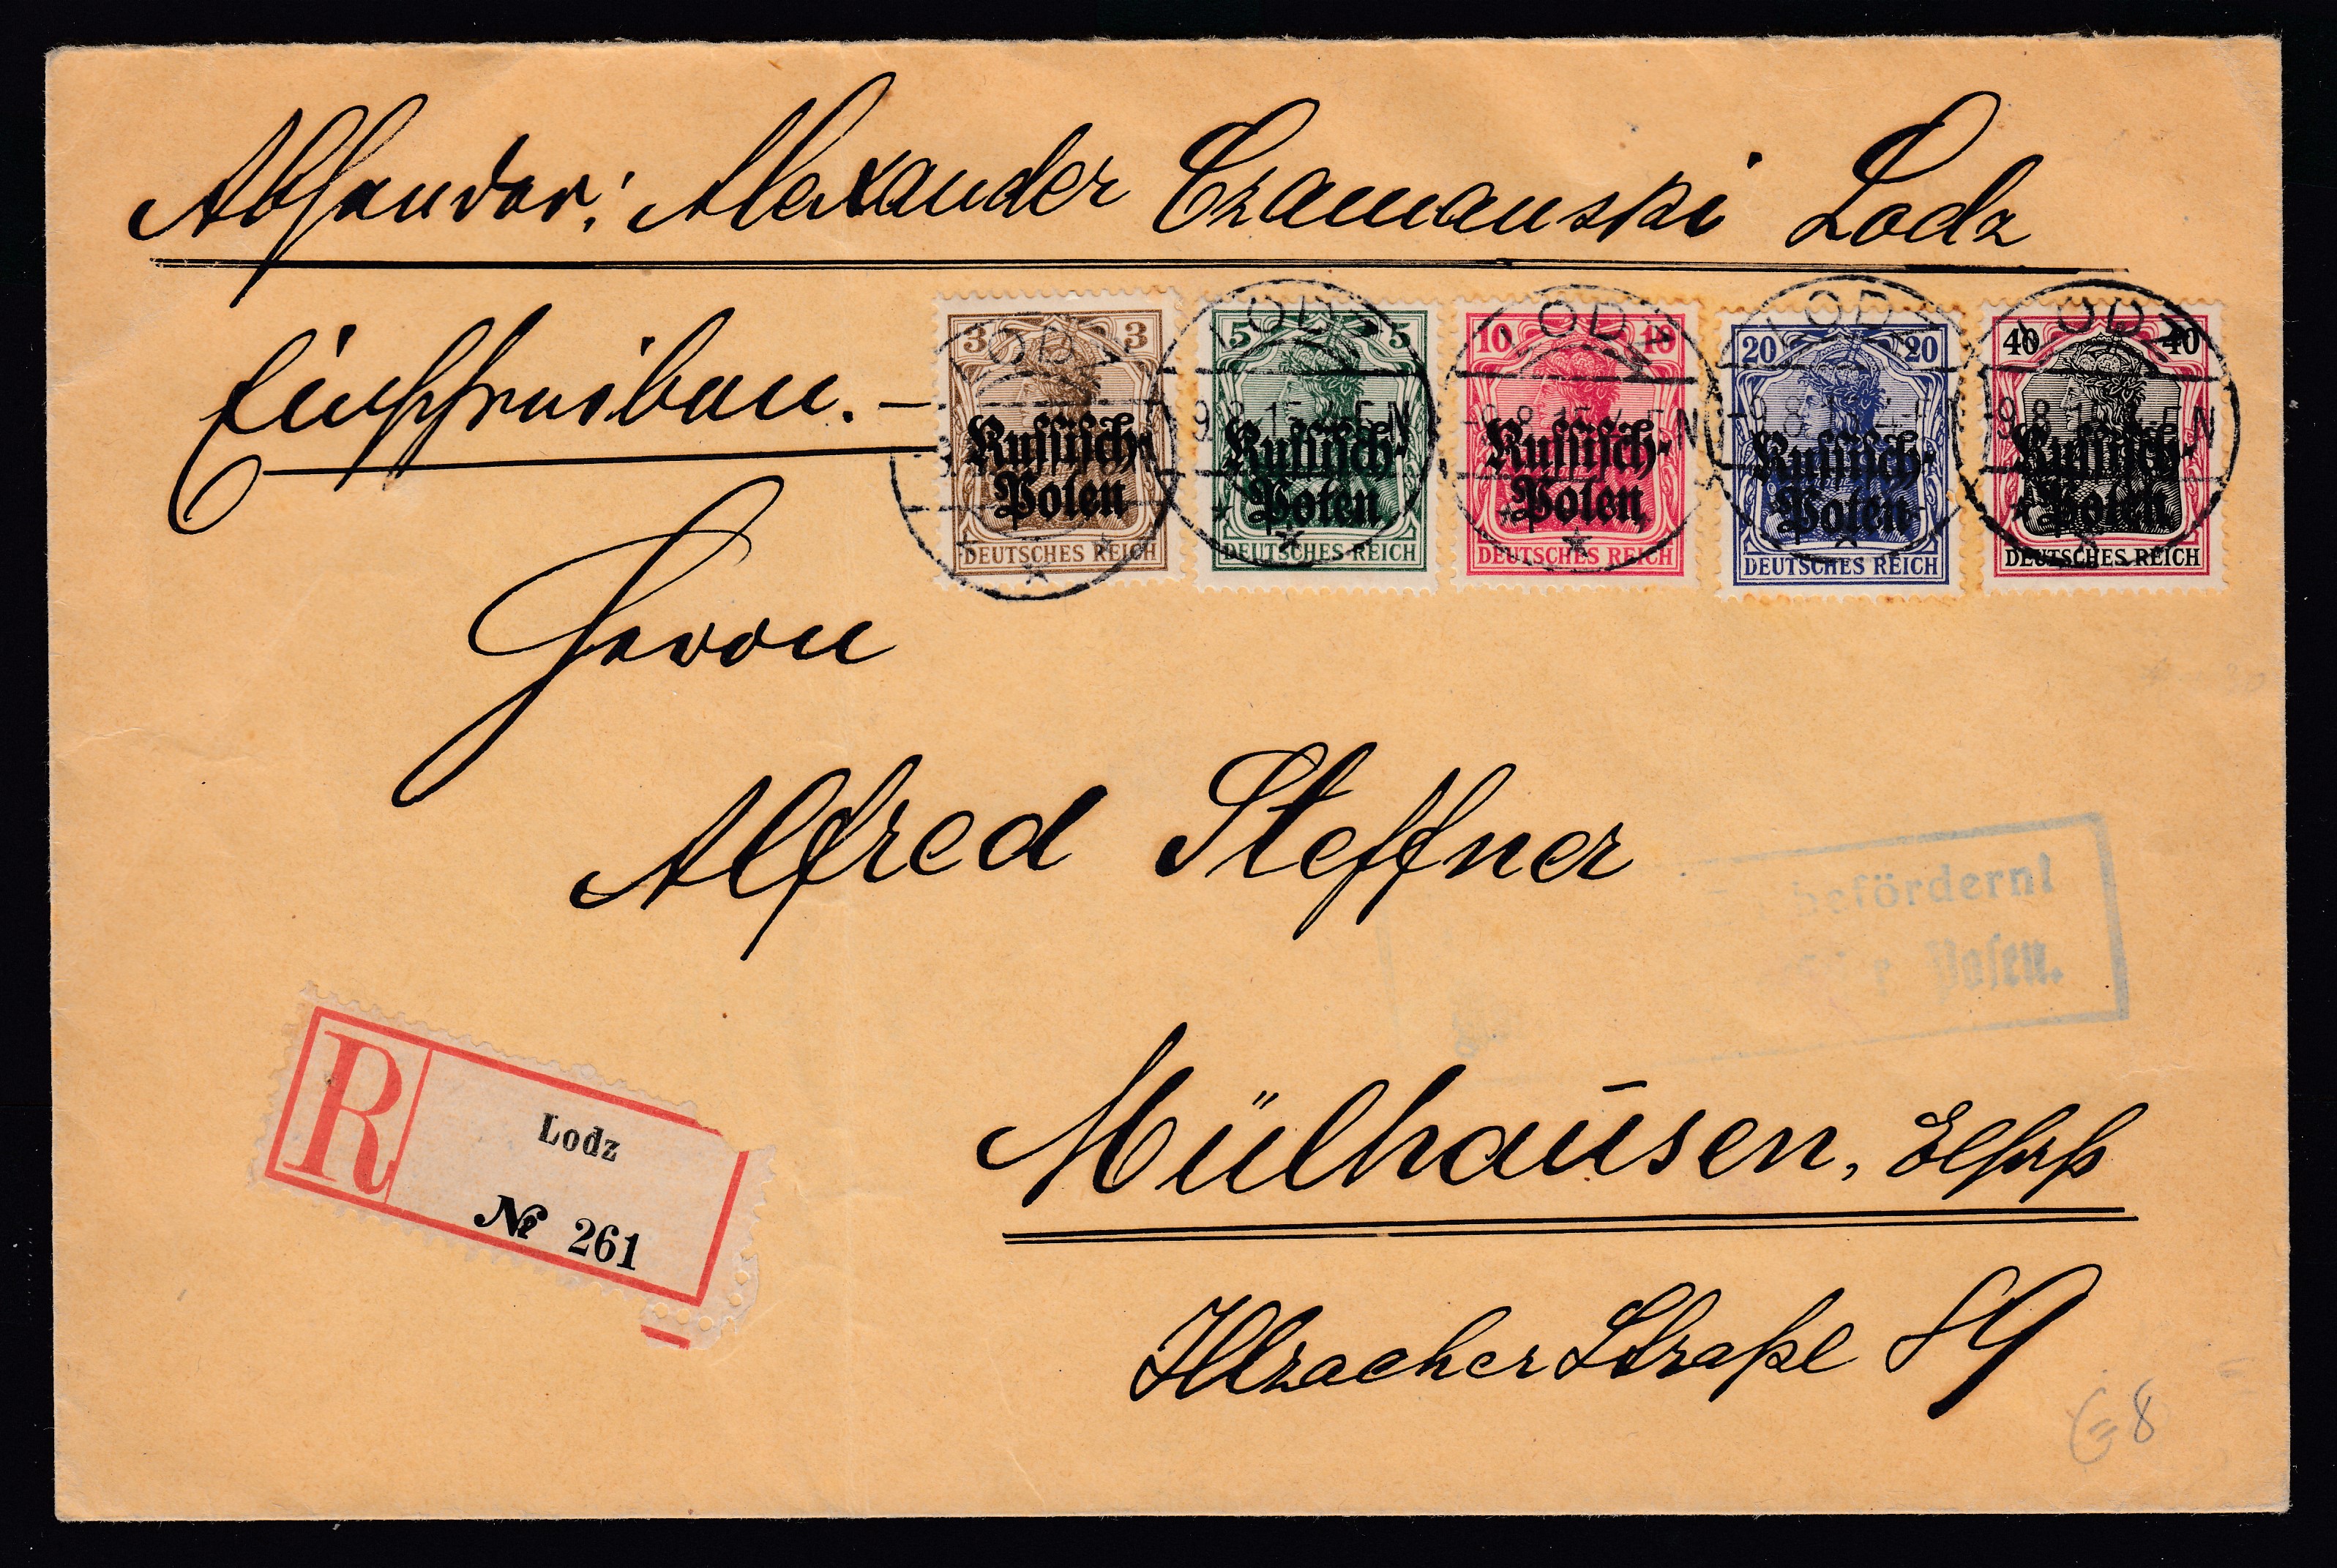 Absender: Alexander Czamanski Lodz
Einschreiben.
3 3 5 5 10 10 20 20 40 40
LODZ LODZ LODZ LODZ LODZ
9.8.15
Russisch- Russisch- Russisch- Russisch- Russisch-
Polen Polen Polen Polen Polen
DEUTSCHES REICH DEUTSCHES REICH DEUTSCHES REICH DEUTSCHES REICH DEUTSCHES REICH
Herrn
Alfred Steffner
befördern!
Posen.
R Lodz
№ 261
Mülhausen, Elsaß
Illzacher Straße 89
8